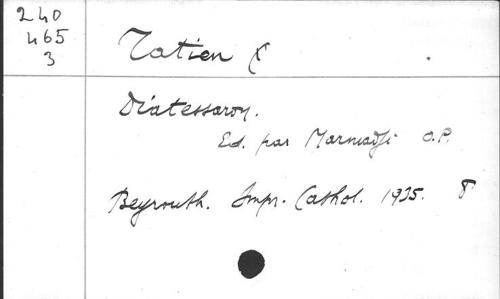 240
465
3
Tatien
Diatessaron.
Ed. par Marmadji O.P.
Beyrouth. Impr. Cathol. 1935. 8